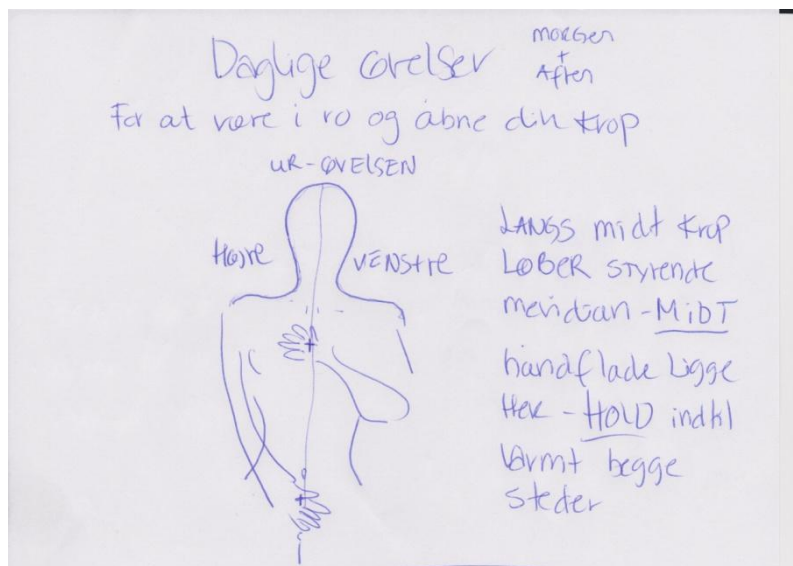 Daglige øvelser
MORGEN
+
Aften
For at være i ro og åbne din krop
UR-ØVELSEN
Højre
VENSTRE
LANGS midt krop
LØBER styrende
meridian - MiDT
håndflade ligge
Her - HOLD indtil
varmt begge
steder